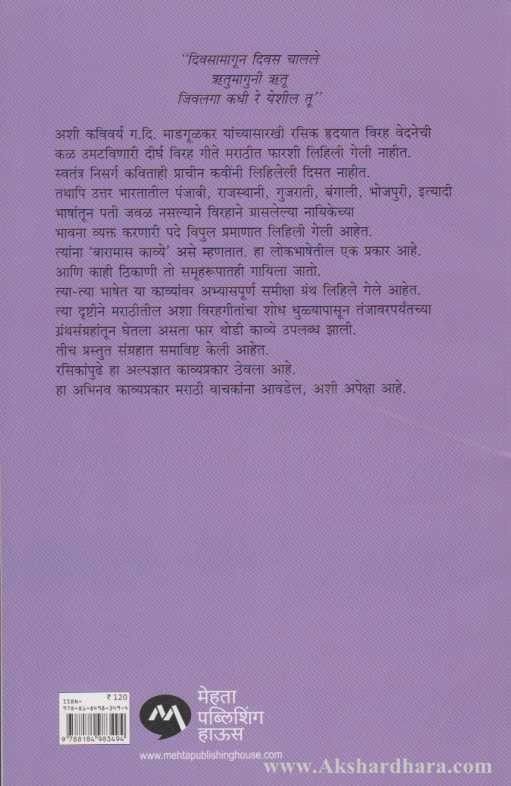 "दिवसामागून दिवस चालले
ऋतुमागुनी ऋतू
जिवलगा कधी रे येशील तू"
अशी कविवर्य ग.दि. माडगूळकर यांच्यासारखी रसिक हृदयात विरह वेदनेची
कळ उमटविणारी दीर्घ विरह गीते मराठीत फारशी लिहिली गेली नाहीत.
स्वतंत्र निसर्ग कविताही प्राचीन कवींनी लिहिलेली दिसत नाहीत.
तथापि उत्तर भारतातील पंजाबी, राजस्थानी, गुजराती, बंगाली, भोजपुरी, इत्यादी
भाषांतून पती जवळ नसल्याने विरहाने ग्रासलेल्या नायिकेच्या
भावना व्यक्त करणारी पदे विपुल प्रमाणात लिहिली गेली आहेत.
त्यांना 'बारामास काव्ये' असे म्हणतात. हा लोकभाषेतील एक प्रकार आहे.
आणि काही ठिकाणी तो समूहरूपातही गायिला जातो.
त्या-त्या भाषेत या काव्यांवर अभ्यासपूर्ण समीक्षा ग्रंथ लिहिले गेले आहेत.
त्या दृष्टीने मराठीतील अशा विरहगीतांचा शोध धुळ्यापासून तंजावरपर्यंतच्या
ग्रंथसंग्रहांतून घेतला असता फार थोडी काव्ये उपलब्ध झाली.
तीच प्रस्तुत संग्रहात समाविष्ट केली आहेत.
रसिकांपुढे हा अल्पज्ञात काव्यप्रकार ठेवला आहे.
हा अभिनव काव्यप्रकार मराठी वाचकांना आवडेल, अशी अपेक्षा आहे.
₹ 120
ISBN-
978-81-8498-349-4
9 788184 983494
मेहता
पब्लिशिंग
हाऊस
www.mehtapublishinghouse.com
www.Akshardhara.com